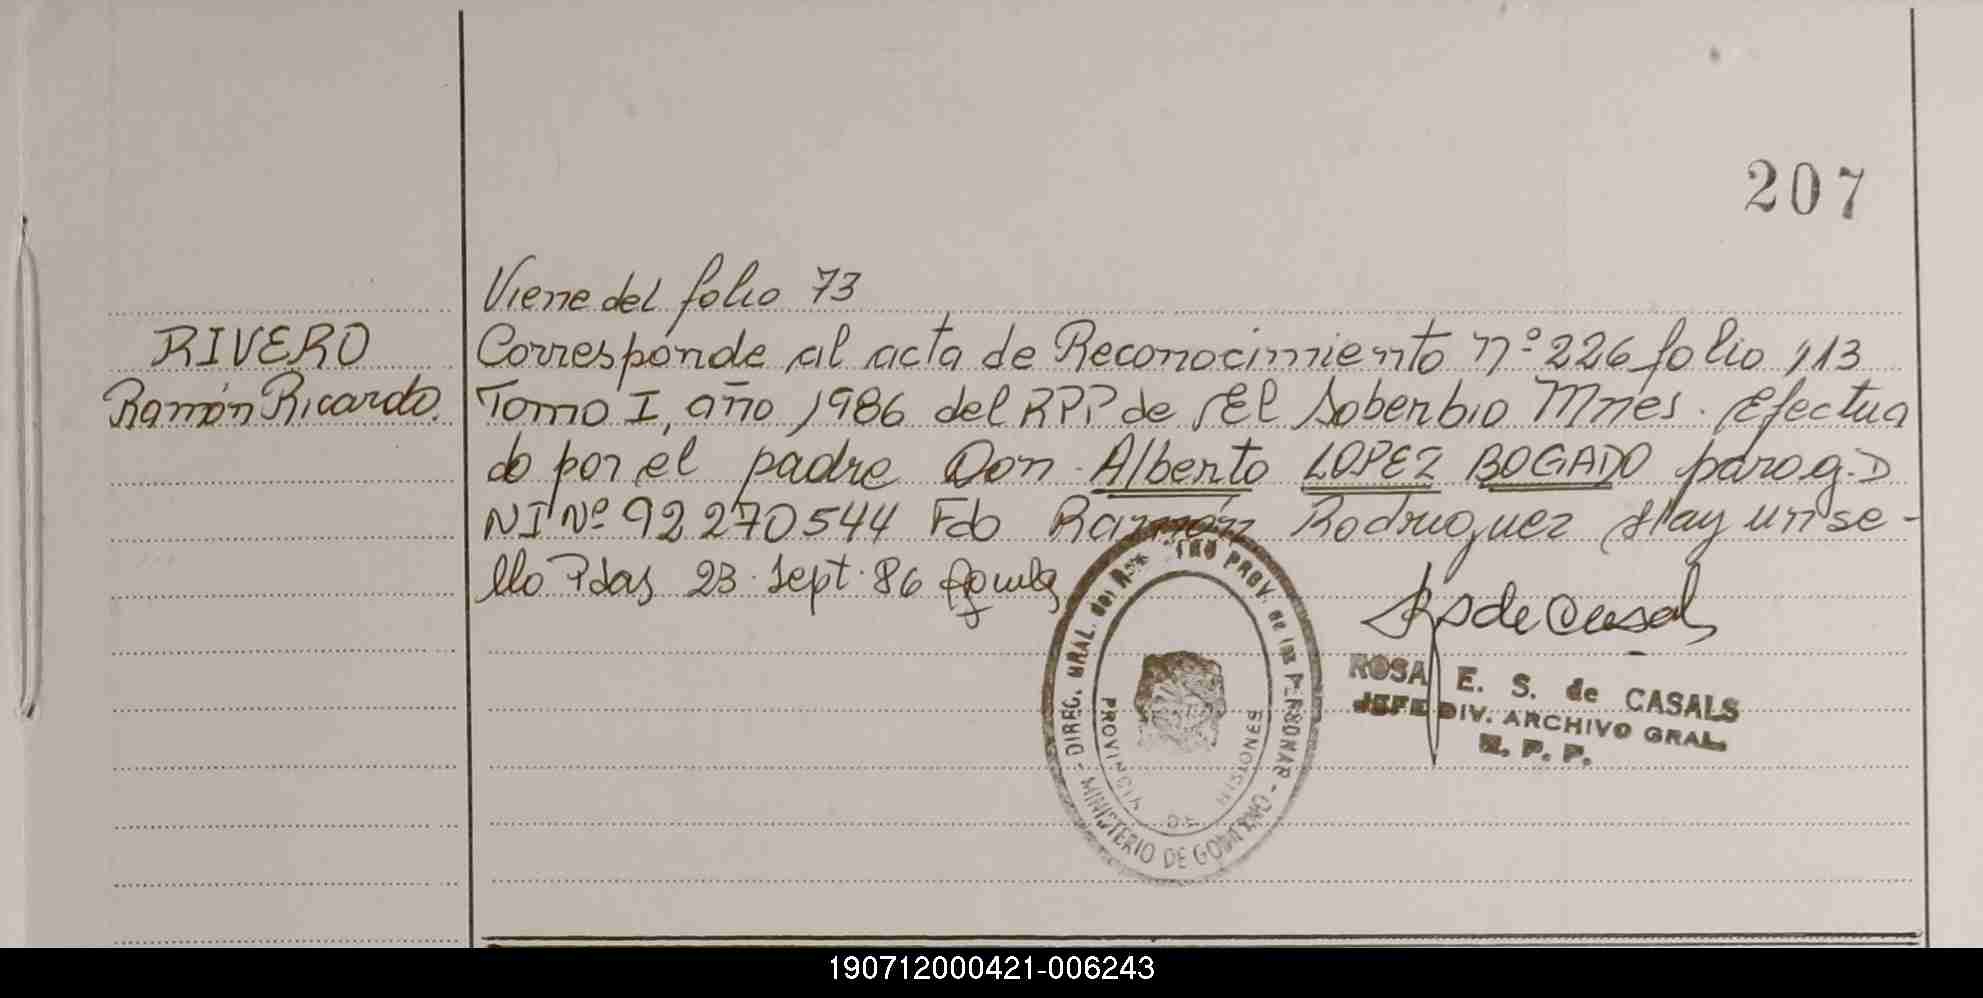 207
Viene del folio 73
RIVERO
Ramón Ricardo.
Corresponde al acta de Reconocimiento nº 226 folio 113
Tomo I, año 1986 del RPP de El Soberbio Mnes. Efectua
do por el padre Don Alberto LOPEZ BOGADO parag. D
NI Nº 92270544 Fdo Ramón Rodriguez Hay un se-
llo Pdas 23. Sept. 86
DIREC. GRAL. del PROV. de las PERSONAS - MINISTERIO DE GOBIERNO -
PROVINCIA DE MISIONES
de Casals
ROSA E. S. de CASALS
JEFE DIV. ARCHIVO GRAL.
R. P. P.
190712000421-006243